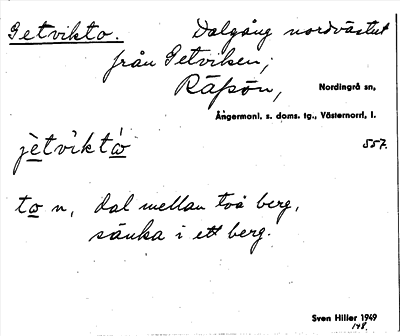 Getvikto. Dalgång nordvästut
från Getviken,
Räfsön, Nordingrå sn,
Ångermanl. s. doms. tg., Västernorrl. l.
557.
jètvìktò
to n, dal mellan två berg,
sänka i ett berg.
Sven Hiller 1949
148.